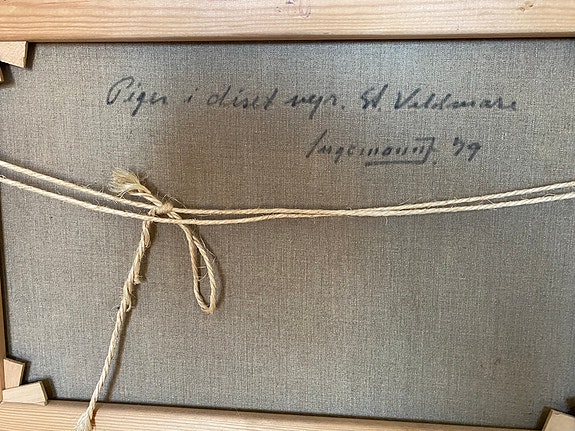 Piger i diset vejr. St. Vildmose
Ingemann J. 79